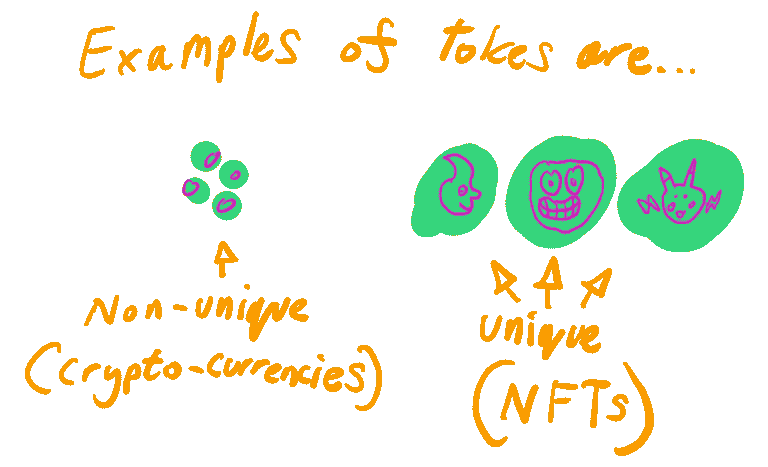 Examples of tokes are...
Non-unique
(crypto-currencies)
unique
(NFTs)